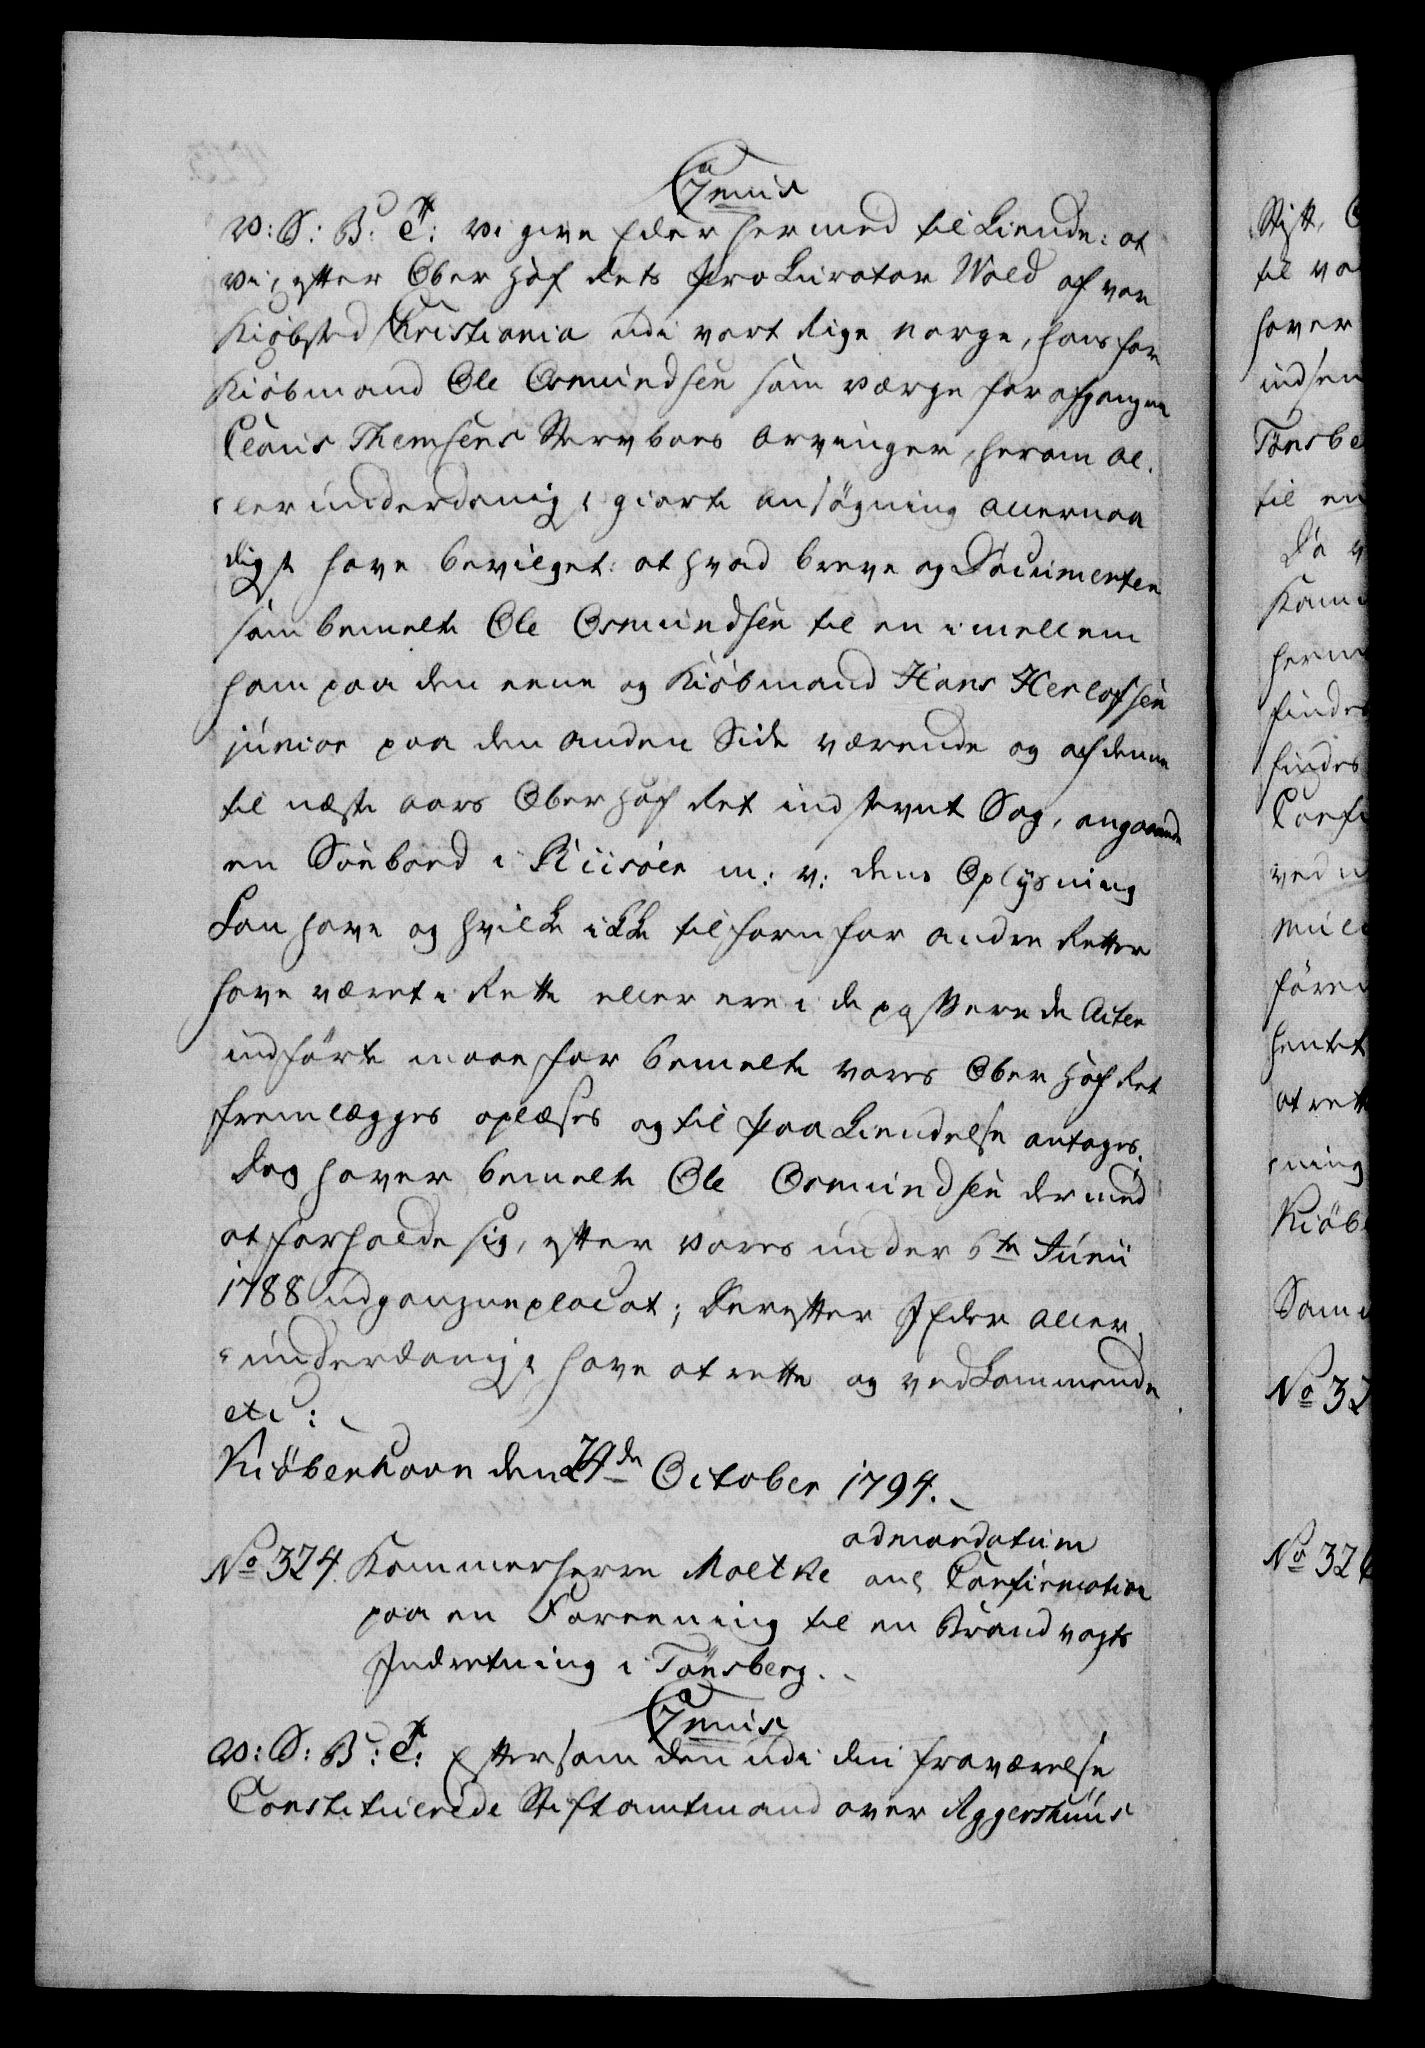 C 7 mus
V: S: B: T: Vi give Eder hermed tilkiende: at
vi, efter Ober Hof Rets Prokurator Wold af vor
Kiøbsted Christiania udi vort Rige Norge, hans for
Kiøbmand Ole Osmundsen som Værge for afgangne
Clous Themsens Stervboes Arvinger, herom al¬
lerunderdanigst giorte Ansøgning allernaa
digst have bevilget: at hvad Breve og Documenter
som bemelte Ole Osmundsen til en imellem
ham paa den eene og Kiøbmand Hans Herlofsen
junior paa den anden Side værende og af denne
til næste Aars Ober Hof Ret indstevnt Sag, angaaende
en Søeboed i Riisøer m: v: dens Oplysning
kan have og hvilke ikke tilforn for andre Retter
have været i Rette eller ere i de passerede Acter
indførte maae for bemelte vores Ober Hof Ret
fremlægges oplæses og til Paakiendelse antages.
Dog haver bemelte Ole Osmundsen dermed
at forholde sig, efter vores under 6te Junii
1788 udgangne placat; Derefter I Eder aller¬
underdanigst have at rette og vedkommende
etc:
Kiøbenhavn den 24de October 1794.
admandatum
No 324. Kammerherre Moltke ang Confirmation
paa en Foreening til en Brandvagts
Indretning i Tønsberg.
C 7 mus
V: S: B: T: Eftersom den udi din fraværelse
Constituerede Stiftamtmand over Aggershuus
Stift,
til vo
haver
indsen
Tønsbe
til en
Da v
Kam
herm
finde
findes
Confi
ved n
mile
føre
hentet
at rett
ning
Kiøbe
Sam
No 32
No 326